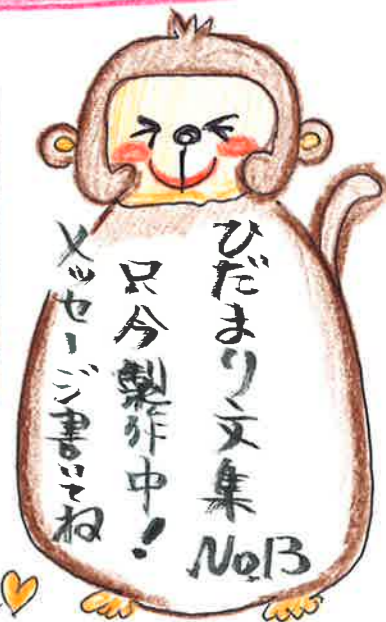 ひだまり文集No13
只今製作中!
メッセージ書いてね